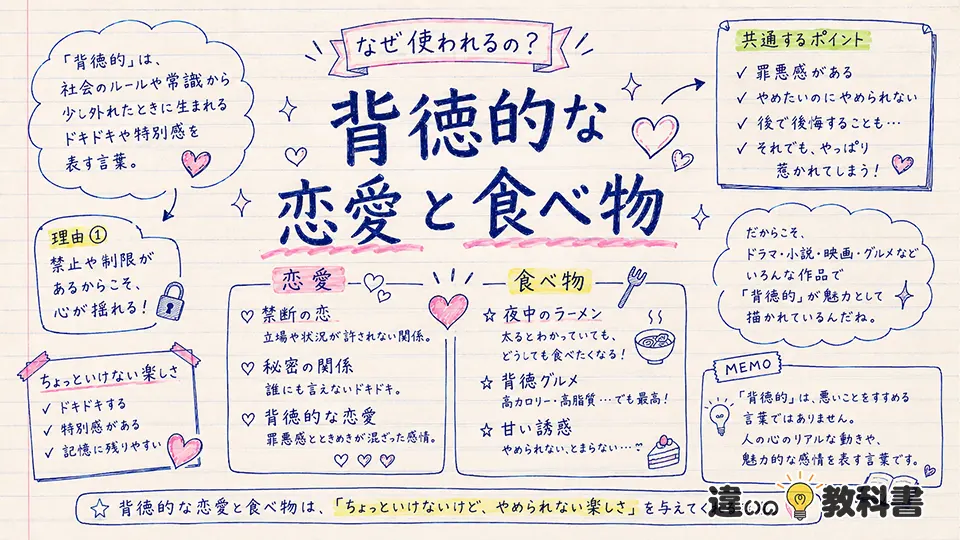 なぜ使われるの？
背徳的な
恋愛と食べ物
「背徳的」は、
社会のルールや常識から
少し外れたときに生まれる
ドキドキや特別感を
表す言葉。
共通するポイント
✓ 罪悪感がある
✓ やめたいのにやめられない
✓ 後で後悔することも…
✓ それでも、やっぱり
惹かれてしまう！
理由①
禁止や制限が
あるからこそ、
心が揺れる！
だからこそ、
ドラマ・小説・映画・グルメなど
いろんな作品で
「背徳的」が魅力として
描かれているんだね。
恋愛
♡ 禁断の恋
立場や状況が許されない関係。
♡ 秘密の関係
誰にも言えないドキドキ。
♡ 背徳的な恋愛
罪悪感とときめきが混ざった感情。
食べ物
☆ 夜中のラーメン
太るとわかっていても、
どうしても食べたくなる！
☆ 背徳グルメ
高カロリー・高脂質…でも最高！
☆ 甘い誘惑
やめられない、とまらない…
ちょっといけない楽しさ
✓ ドキドキする
✓ 特別感がある
✓ 記憶に残りやすい
MEMO
「背徳的」は、悪いことをすすめる
言葉ではありません。
人の心のリアルな動きや、
魅力的な感情を表す言葉です。
☆ 背徳的な恋愛と食べ物は、「ちょっといけないけど、やめられない楽しさ」を与えてく
違いの教科書